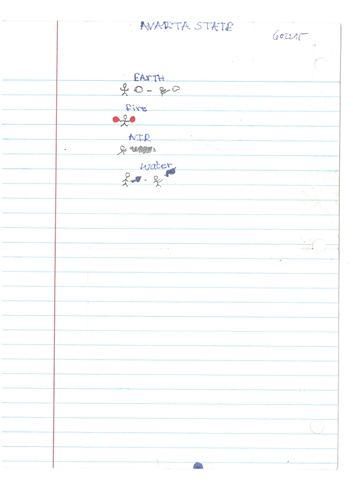 AVARTA STATE
602215
EARTH
fire
AIR
water